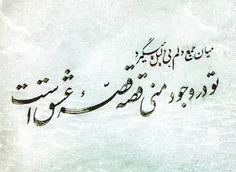 میان جمع دلم بی دلیل میگیرد
تو در وجود منی قصه قصهٔ عشق است